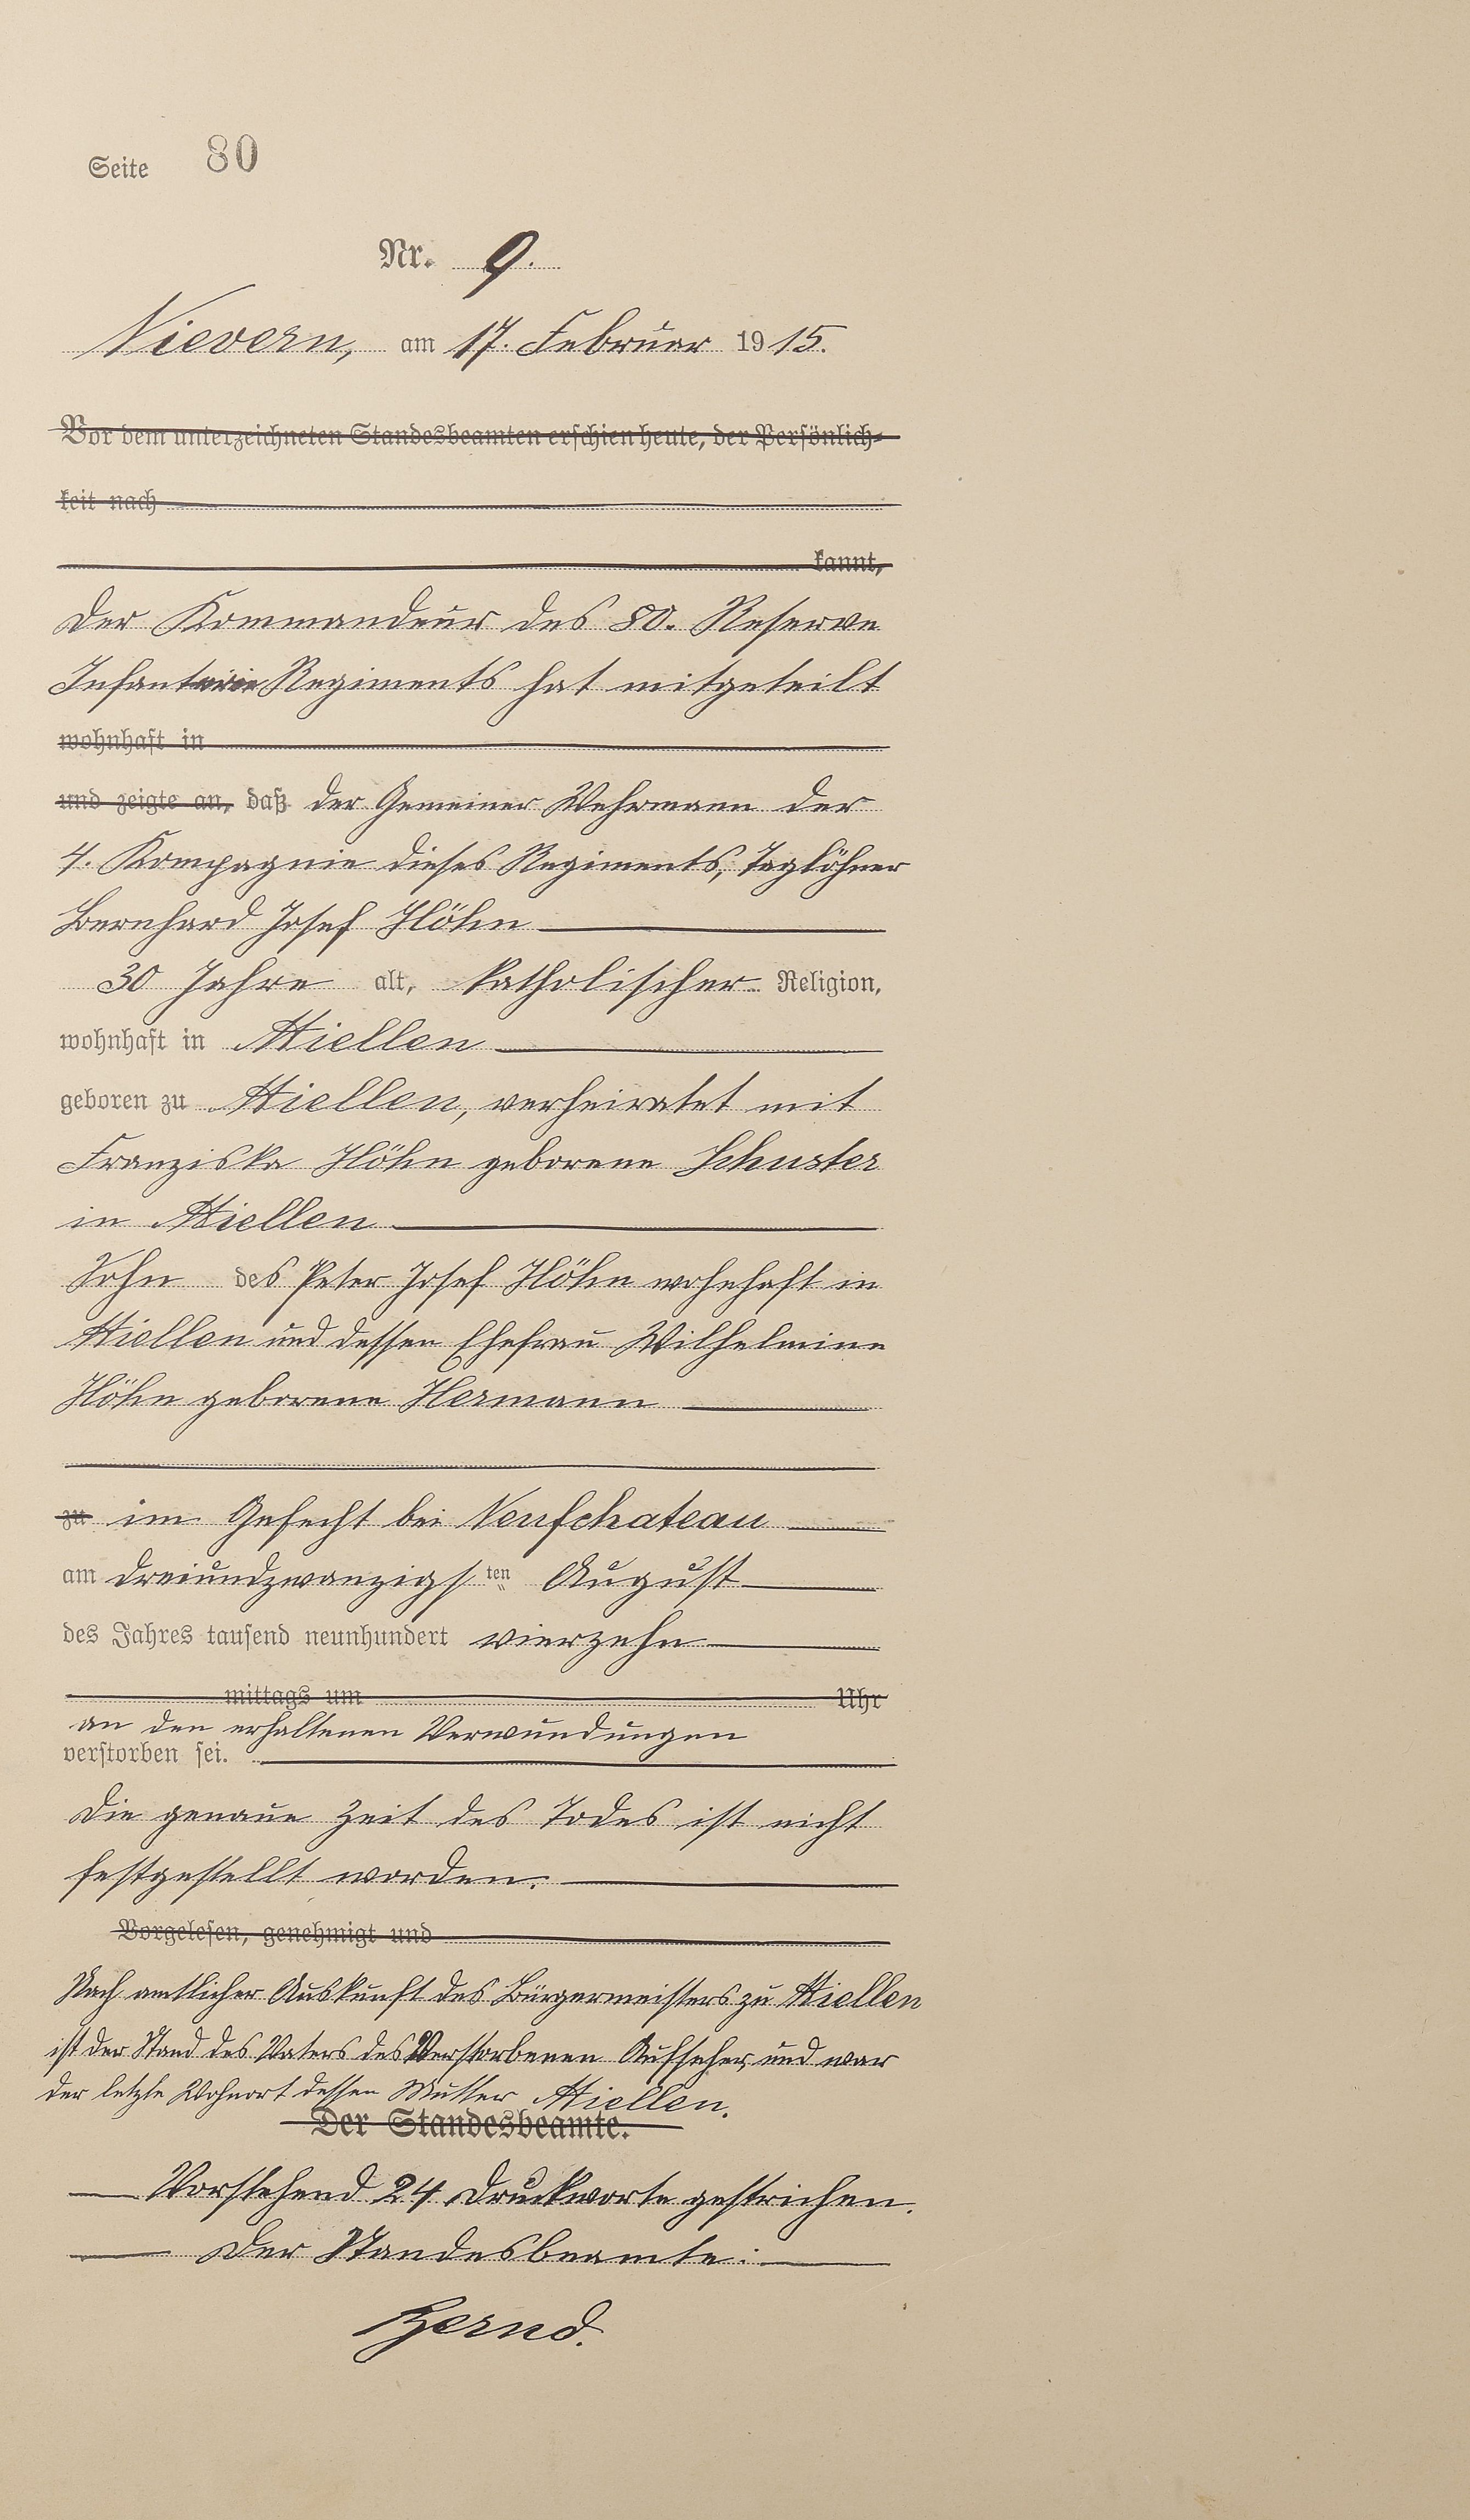 Seite 80
Nr. 9.
Nievern, am 17. Februar 1915.
Vor dem unterzeichneten Standesbeamten erschien heute, der Persönlich-
keit nach
kannt,
Der Kommandeur des 80. Reserve
Infanterie Regiments hat mitgeteilt
wohnhaft in
und zeigte an, daß der Gemeiner Wehrmann der
4. Kompagnie dieses Regiments, Taglöhner
Bernhard Josef Höhn
30 Jahre alt, katholischer Religion,
wohnhaft in Miellen
geboren zu Miellen, verheiratet mit
Franziska Höhn geborene Schuster
in Miellen
Sohn des Peter Josef Höhn wohnhaft in
Miellen und dessen Ehefrau Wilhelmine
Höhn geborene Hermann
zu im Gefecht bei Neufchateau
am dreiundzwanzigsten August
des Jahres tausend neunhundert vierzehn
mittags um Uhr
an den erhaltenen Verwundungen
verstorben sei.
Die genaue Zeit des Todes ist nicht
festgestellt worden.
Vorgelesen, genehmigt und
Nach amtlicher Auskunft des Bürgermeisters zu Miellen
ist der Stand des Vaters des Verstorbenen Aufseher, und war
der letzte Wohnort dessen Mutter Miellen.
Der Standesbeamte.
Vorstehend 24 Druckworte gestrichen.
Der Standesbeamte: